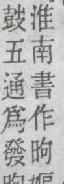 淮南書作昫
鼓五通爲發